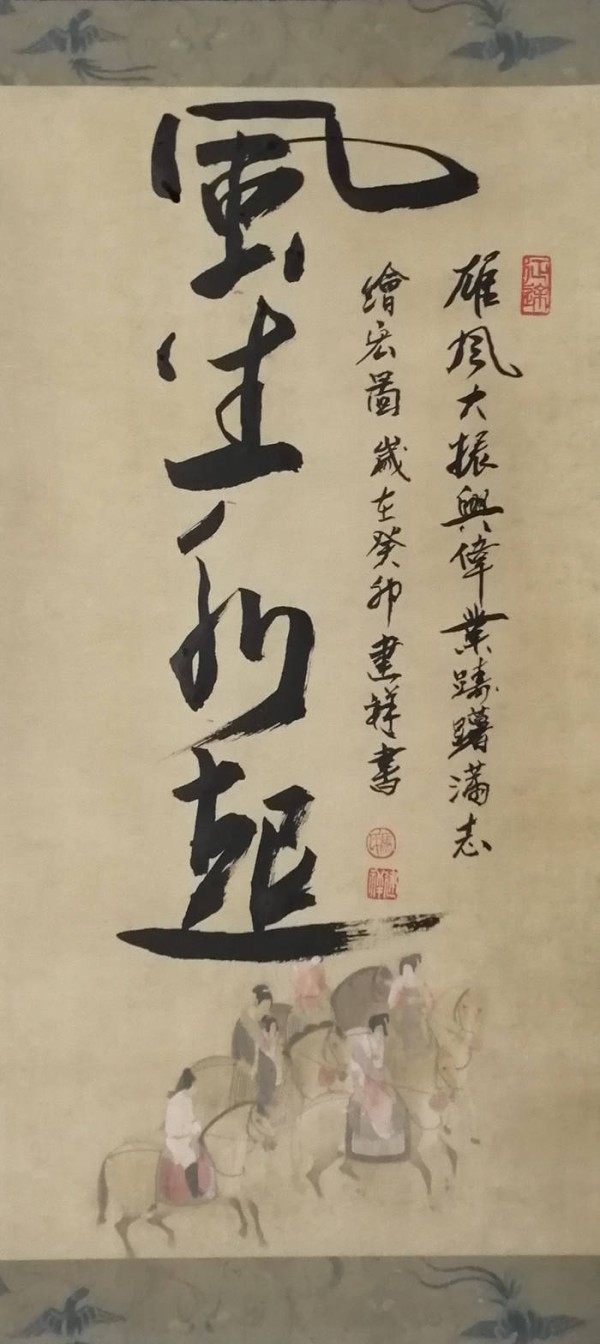 雄風大振興偉業躊躇滿志
繪宏圖歲在癸卯建祥書
風生水起